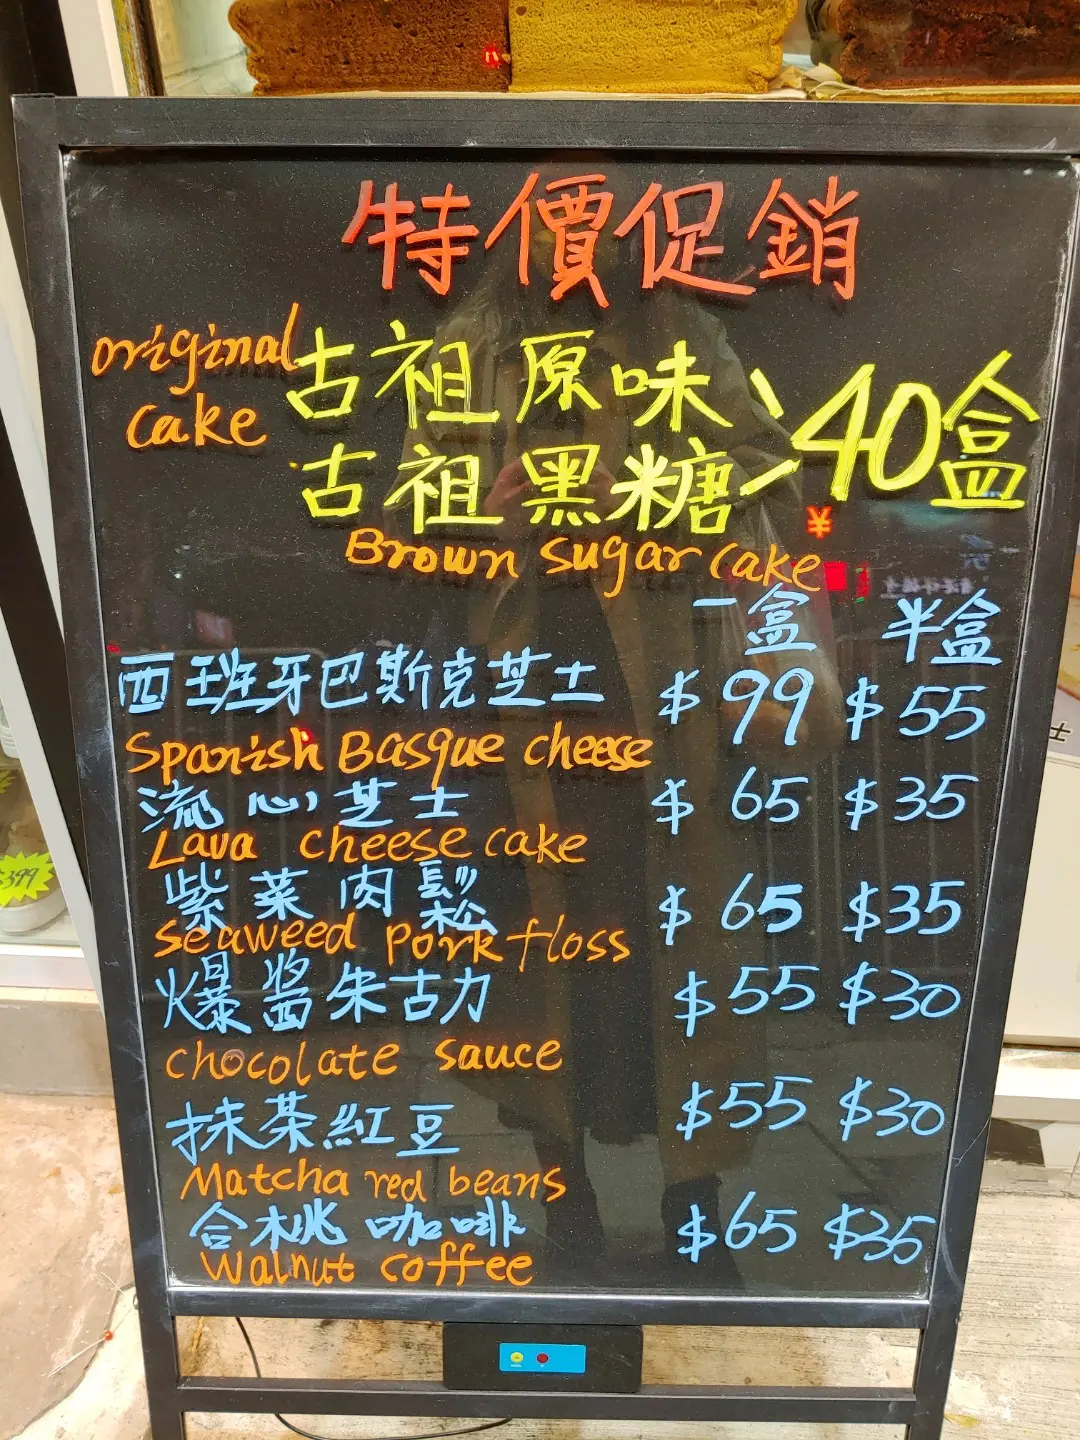 特價促銷
original 古祖原味
cake
古祖黑糖
40盒
Brown sugar cake
¥
一盒 半盒
西班牙巴斯克芝士 $99 $55
Spanish Basque cheese
流心芝士 $65 $35
Lava cheese cake
紫菜肉鬆 $65 $35
Seaweed pork floss
爆醬朱古力 $55 $30
chocolate sauce
抹茶紅豆 $55 $30
Matcha red beans
合桃咖啡 $65 $35
Walnut coffee
$399
士